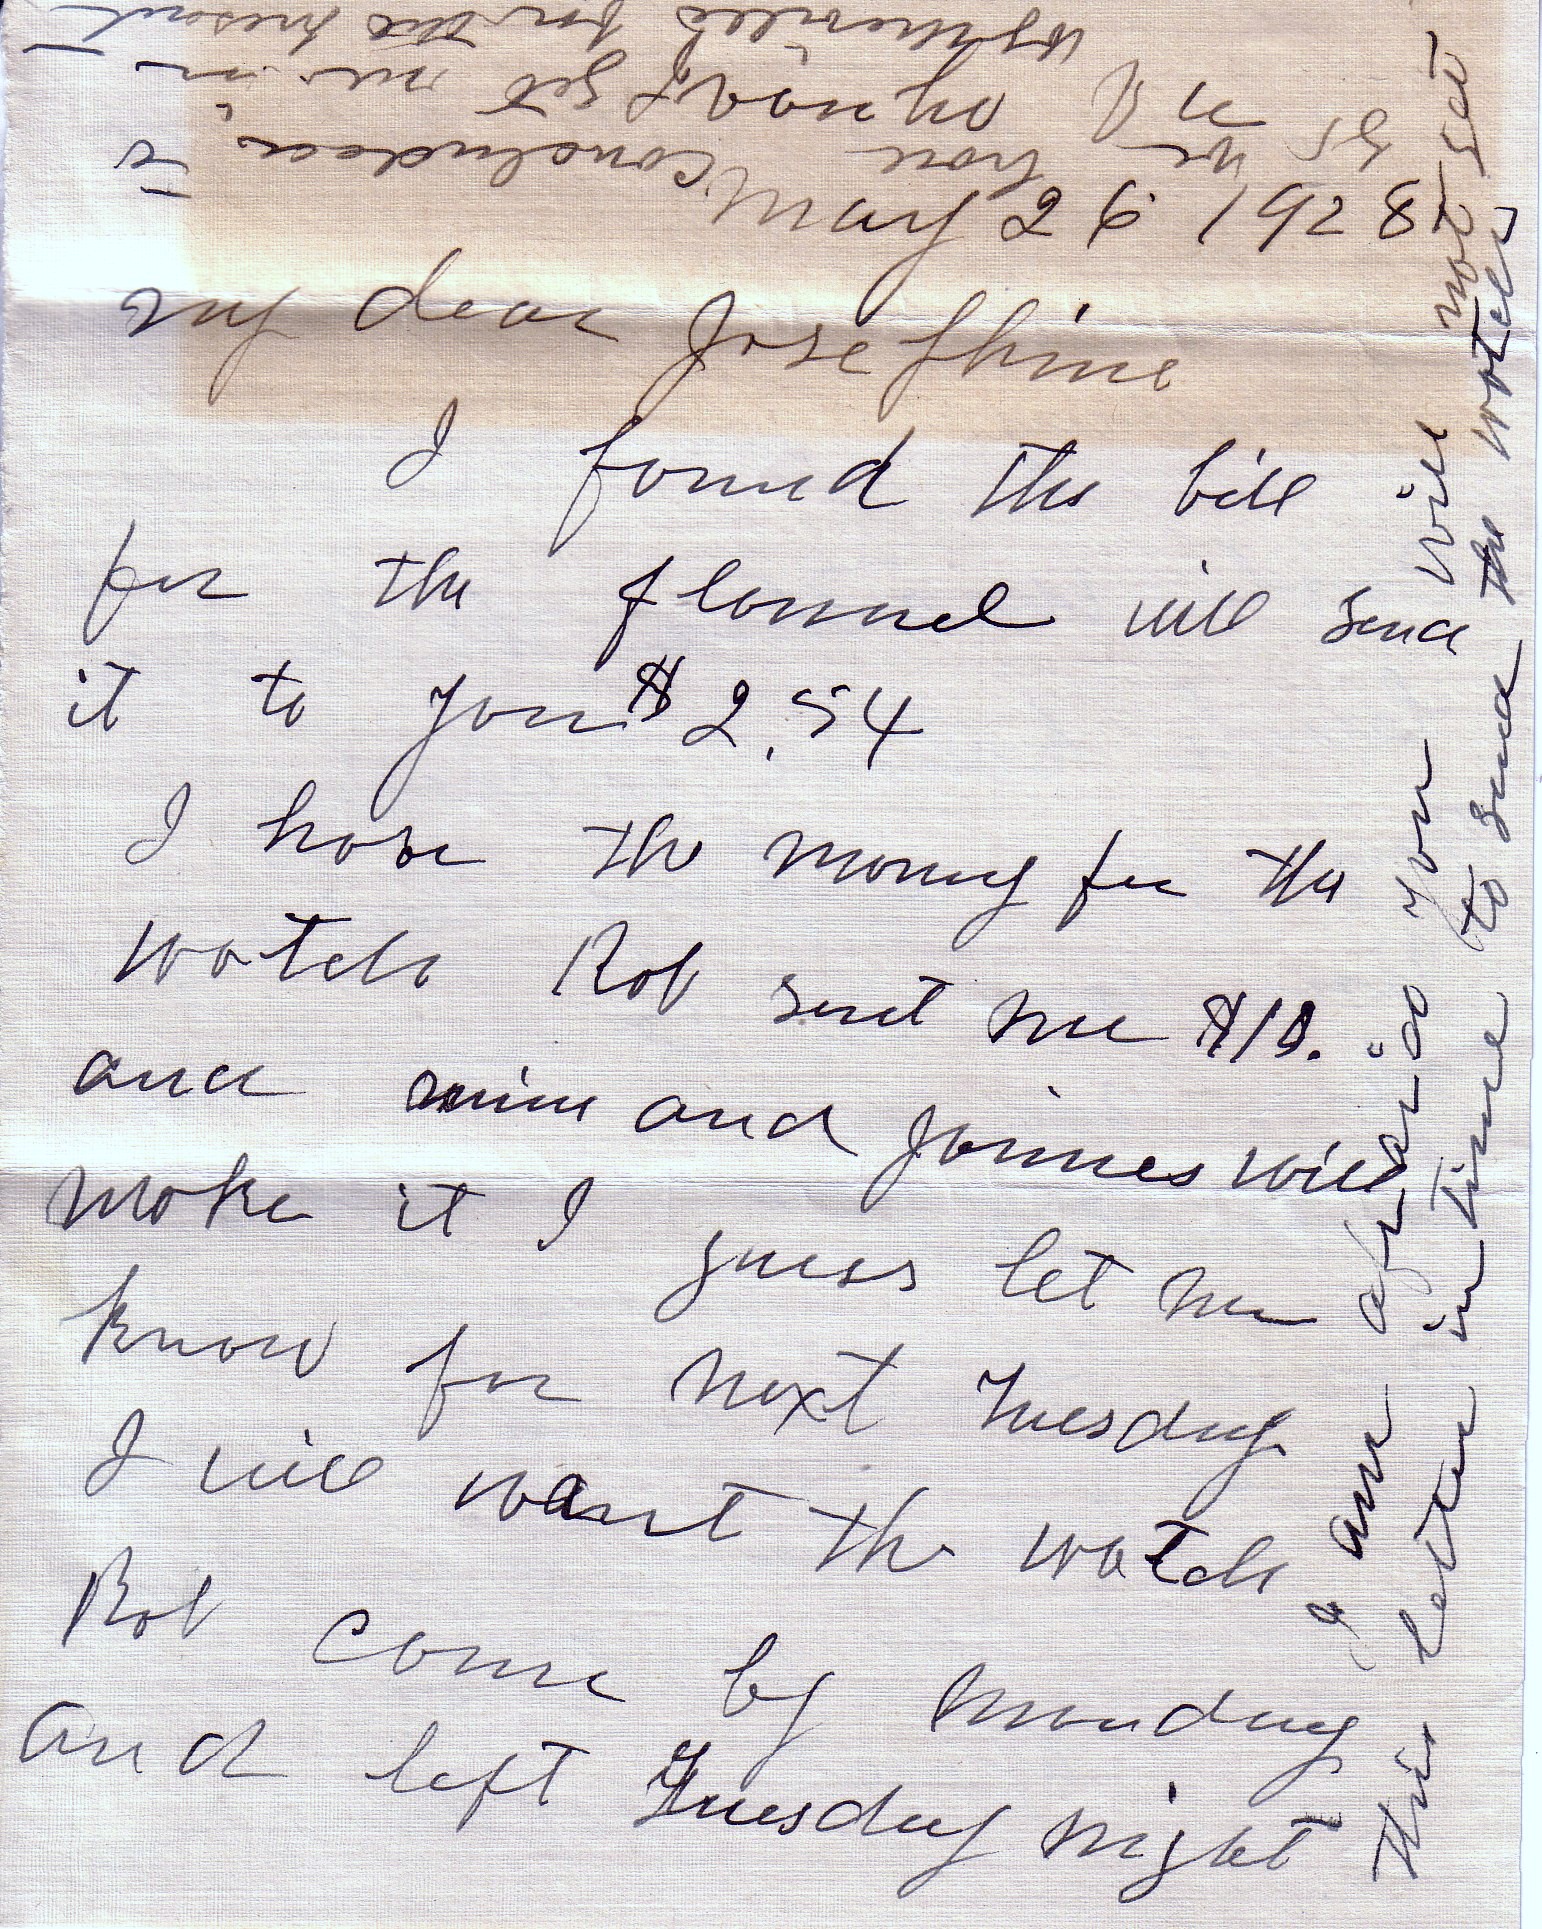 May 26 1928
my dear Josephine
I found the bill
for the flannel will send
it to you $2.54
I have the money for the
watch Rob sent me $10.
and mine and will
make it I guess let me
know for next Tuesday
I will want the watch
Rob come by monday
and left Tuesday night
I am afraid you will not get
this letter in time to send the watch
we have concluded to
not get me in
for the present